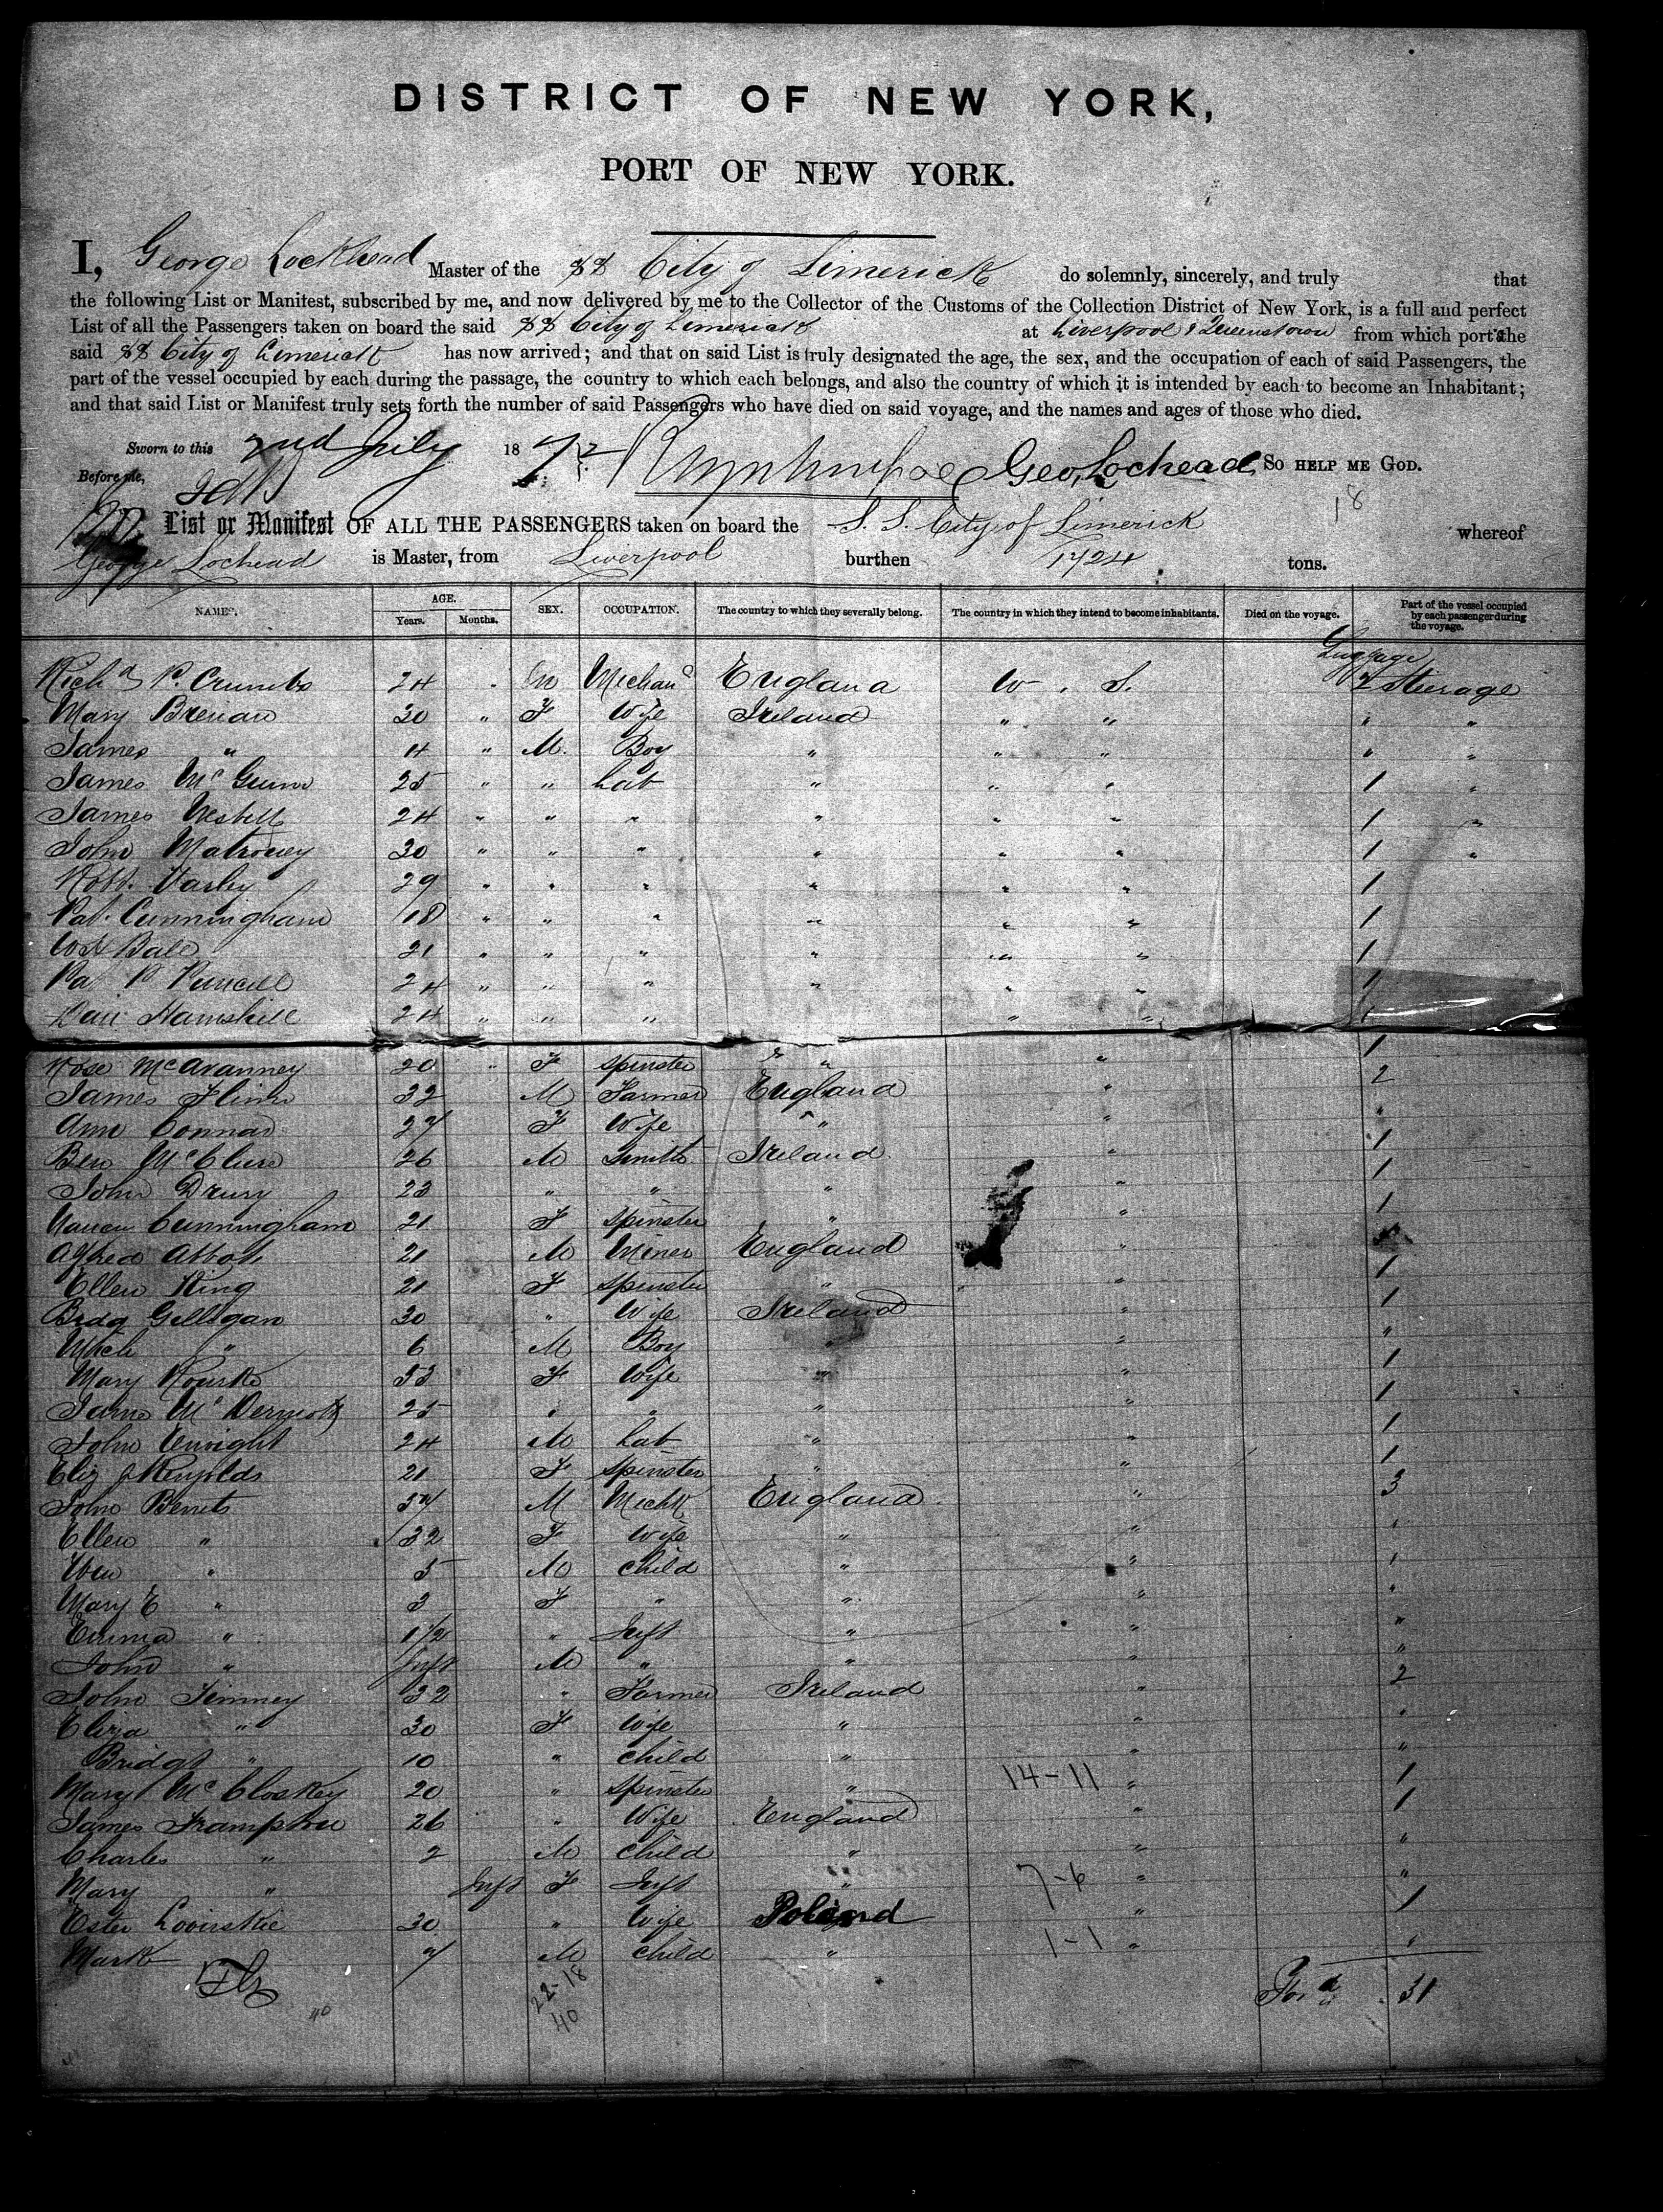 DISTRICT OF NEW YORK,
PORT OF NEW YORK.
I, George Lockhead Master of the SS City of Limerick do solemnly, sincerely, and truly that
the following List or Manifest, subscribed by me, and now delivered by me to the Collector of the Customs of the Collection District of New York, is a full and perfect
List of all the Passengers taken on board the said SS City of Limerick at Liverpool & Queenstown from which port the
said SS City of Limerick has now arrived; and that on said List is truly designated the age, the sex, and the occupation of each of said Passengers, the
part of the vessel occupied by each during the passage, the country to which each belongs, and also the country of which it is intended by each to become an Inhabitant;
and that said List or Manifest truly sets forth the number of said Passengers who have died on said voyage, and the names and ages of those who died.
Sworn to this 2nd July 1872 Geo. Lochead SO HELP ME GOD.
Before me,
18
List or Manifest OF ALL THE PASSENGERS taken on board the S. S. City of Limerick whereof
George Lochead is Master, from Liverpool burthen 1724 tons.
NAMES. AGE. Years. Months. SEX. OCCUPATION. The country to which they severally belong. The country in which they intend to become inhabitants. Died on the voyage. Part of the vessel occupied by each passenger during the voyage.
Luggage
Richd P. Crumbs 24 M Mechanc England U. S. 2 Steerage
Mary Brenan 30 " F Wife Ireland " " " "
James " 4 " M. Boy " " " " "
James McGunn 25 " " Lab " " " 1 "
James Nesbitt 24 " " " " " " 1 "
John Matroney 30 " " " " " " 1 "
Robt. Varley 29 " " " " " " 1
Pat. Cunningham 18 " " " " " " 1
Bale 21 " " " " " " 1
Pat P Purcell 24 " " " " " " 1
Hamshill 24 " " " " " 1
Rose McAranney 20 " F Spinster " " 1
James Flinn 32 M Farmer England " 2
Ann Connar 27 F Wife " " "
Ben McClure 26 M Smith Ireland " 1
John Drury 23 " " " " 1
Cunningham 21 F Spinster " " 1
Alfred Abbott 21 M Miner England "
Ellen King 21 F Spinster " " 1
Bridg Gilligan 30 " Wife Ireland " 1
Mich " 6 M Boy " " "
Mary Rourke 33 F Wife " " 1
Jame McDermott 25 " " " " 1
John Enright 24 M Lab " " 1
Eliz Reynolds 21 F Spinster " " 1
John Benets 37 M Mechk England " 3
Ellen " 32 F Wife " " "
Wm " 5 M Child " " "
Mary E " 3 F " " " "
Emma " 1 1/2 " Inft " " "
John " Inft M " " " "
John Timney 32 " Farmer Ireland " 2
Eliza " 30 F Wife " " "
Bridgt " 10 " Child " " "
Mary McCloskey 20 " Spinster " 14-11 " 1
James Frampton 26 " Wife England " 1
Charles " 2 M Child " " "
Mary " Inft F Inft " 7-6 " "
Ester Lovinskie 30 " Wife Poland " 1
Mark 7 M Child " 1-1 " "
22-18
40
40
Ford 31